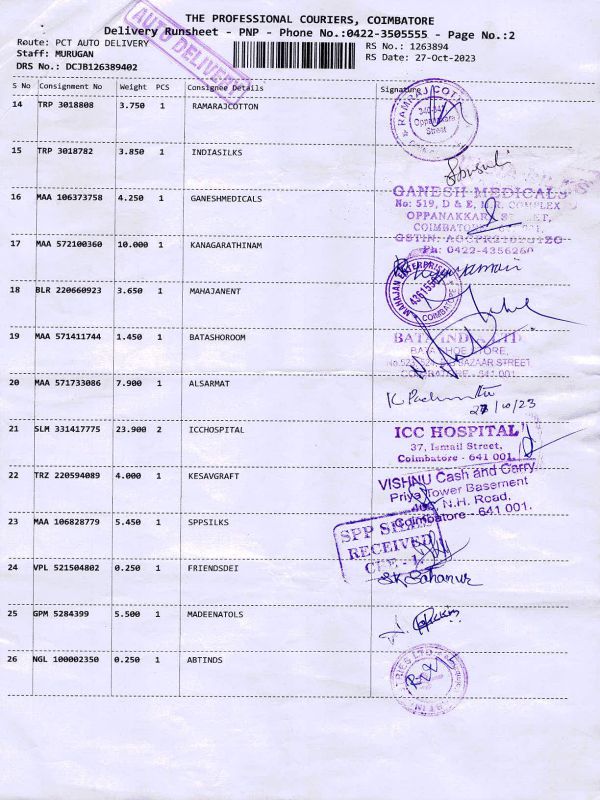 THE PROFESSIONAL COURIERS, COIMBATORE
Delivery Runsheet - PNP - Phone No.:0422-3505555 - Page No.:2
Route: PCT AUTO DELIVERY
RS No.: 1263894
Staff: MURUGAN
RS Date: 27-Oct-2023
DRS No.: DCJB126389402
AUTO DELIVERY
S No Consignment No Weight PCS Consignee Details Signature
14 TRP 3018808 3.750 1 RAMARAJCOTTON
RAMRAJ COTT
Oppanakkara
Street
15 TRP 3018782 3.850 1 INDIASILKS
16 MAA 106373758 4.250 1 GANESHMEDICALS
GANESH MEDICALS
No: 519, D & E, N.R. COMPLEX
OPPANAKKARA STREET,
COIMBATORE
Ph: 0422-4356260
17 MAA 572100360 10.000 1 KANAGARATHINAM
18 BLR 220660923 3.650 1 MAHAJANENT
MAHAJAN ENTERPRISES
COIMBATORE
19 MAA 571411744 1.450 1 BATASHOROOM
BATA INDIA LTD
BATA SHOE STORE,
BAZAAR STREET
COIMBATORE - 641 001.
20 MAA 571733086 7.900 1 ALSARMAT
27/10/23
21 SLM 331417775 23.900 2 ICCHOSPITAL
ICC HOSPITAL
37, Ismail Street,
Coimbatore - 641 001.
22 TRZ 220594089 4.000 1 KESAVGRAFT
VISHNU Cash and Carry
Priya Tower Basement
N.H. Road,
Coimbatore - 641 001.
23 MAA 106828779 5.450 1 SPPSILKS
SPP SILKS
RECEIVED
CBE - 1
24 VPL 521504802 0.250 1 FRIENDSDEI
25 GPM 5284399 5.500 1 MADEENATOLS
26 NGL 100002350 0.250 1 ABTINDS